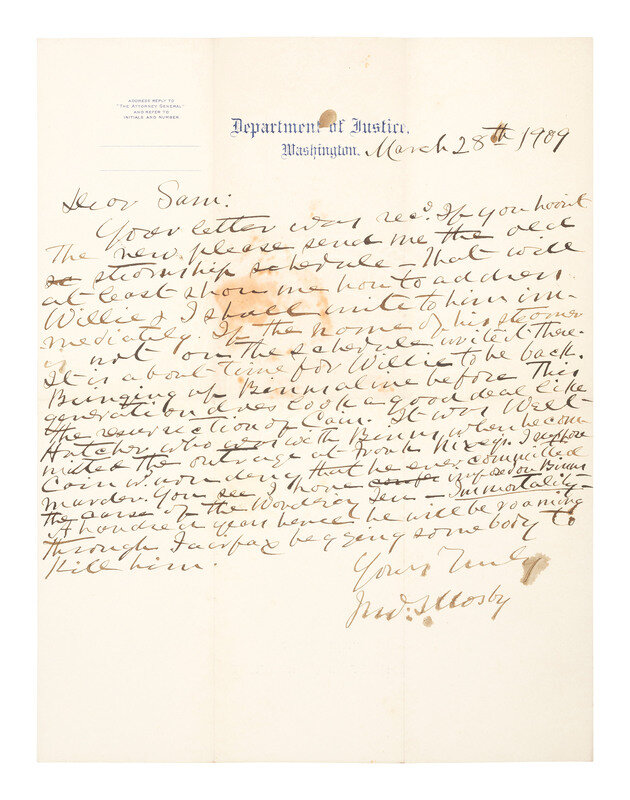 ADDRESS REPLY TO
"THE ATTORNEY GENERAL"
AND REFER TO
INITIALS AND NUMBER
Department of Justice,
Washington. March 28th 1909
Dear Sam:
Your letter was recd. If you havn't
The new please send me the old
steamship schedule - that will
at least show me how to address
Willie & I shall write to him im-
mediately. If the name of his steamer
is not on the schedule write it there.
It is about time for Willie to be back.
Bringing up Binns alive before this
generation does look a good deal like
the resurrection of Cain. It was Walt
Hatcher who was with Binns when he com-
mitted the outrage at Frank
Cain is now deny that he ever committed
murder. You see I have imposed on Binns
the curse of the Wandering Jew - Immortality -
A hundred years hence he will be roaming
through Fairfax begging somebody to
Kill him.
Yours Truly
Jno: S Mosby